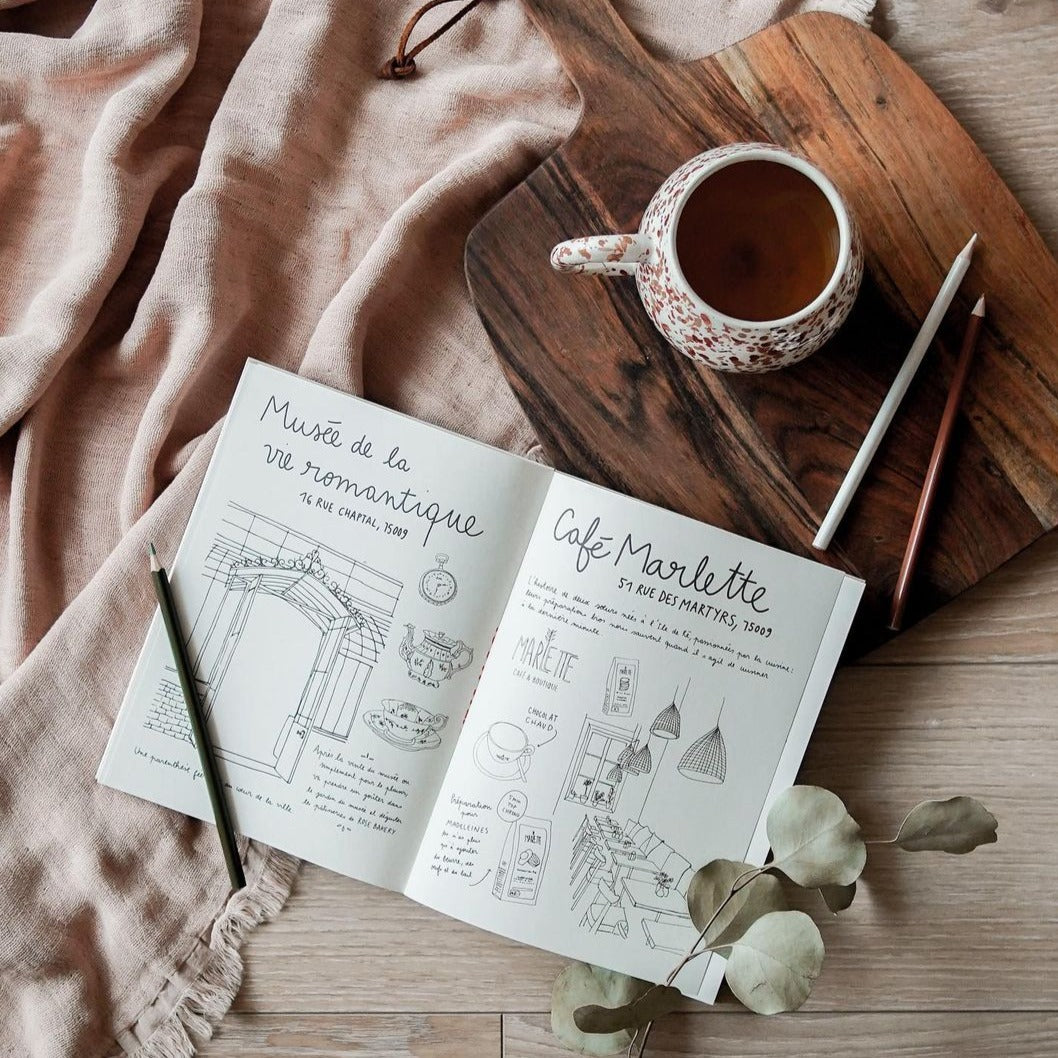 Musée de la
vie romantique
16 RUE CHAPTAL, 75009
Après la visite du musée ou
simplement pour le plaisir,
prendre un goûter dans
le jardin du musée et déguster
les pâtisseries de ROSE BAKERY
Une parenthèse
au cœur de la ville
Café Marlette
51 RUE DES MARTYRS, 75009
L'histoire de deux sœurs née à l'île de Ré, passionnées par la cuisine :
leurs préparations bios nous sauvent quand il s'agit de cuisiner
à la dernière minute
MARLETTE
CAFÉ & BOUTIQUE
CHOCOLAT
CHAUD
Préparation
pour
MADELEINES
il n'y a plus
qu'à ajouter
du beurre, des
œufs et du lait
MARLETTE